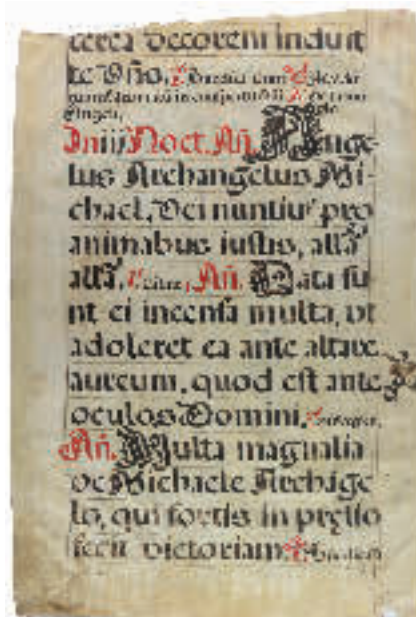 terea decorem induit
te Dño.
Jn iij Noct. Añ. Ange-
lus Archangelus Mi-
chael, Dei nuntiu' pro
animabus iustis, allā
allā. Añ. Data su
nt ei incensa multa, vt
adoleret ea ante altare
aureum, quod est ante
oculos Domini.
Añ. Multa magnalia
de Michaele Archāge
lo, qui fortis in pręlio
fecit victoriam.